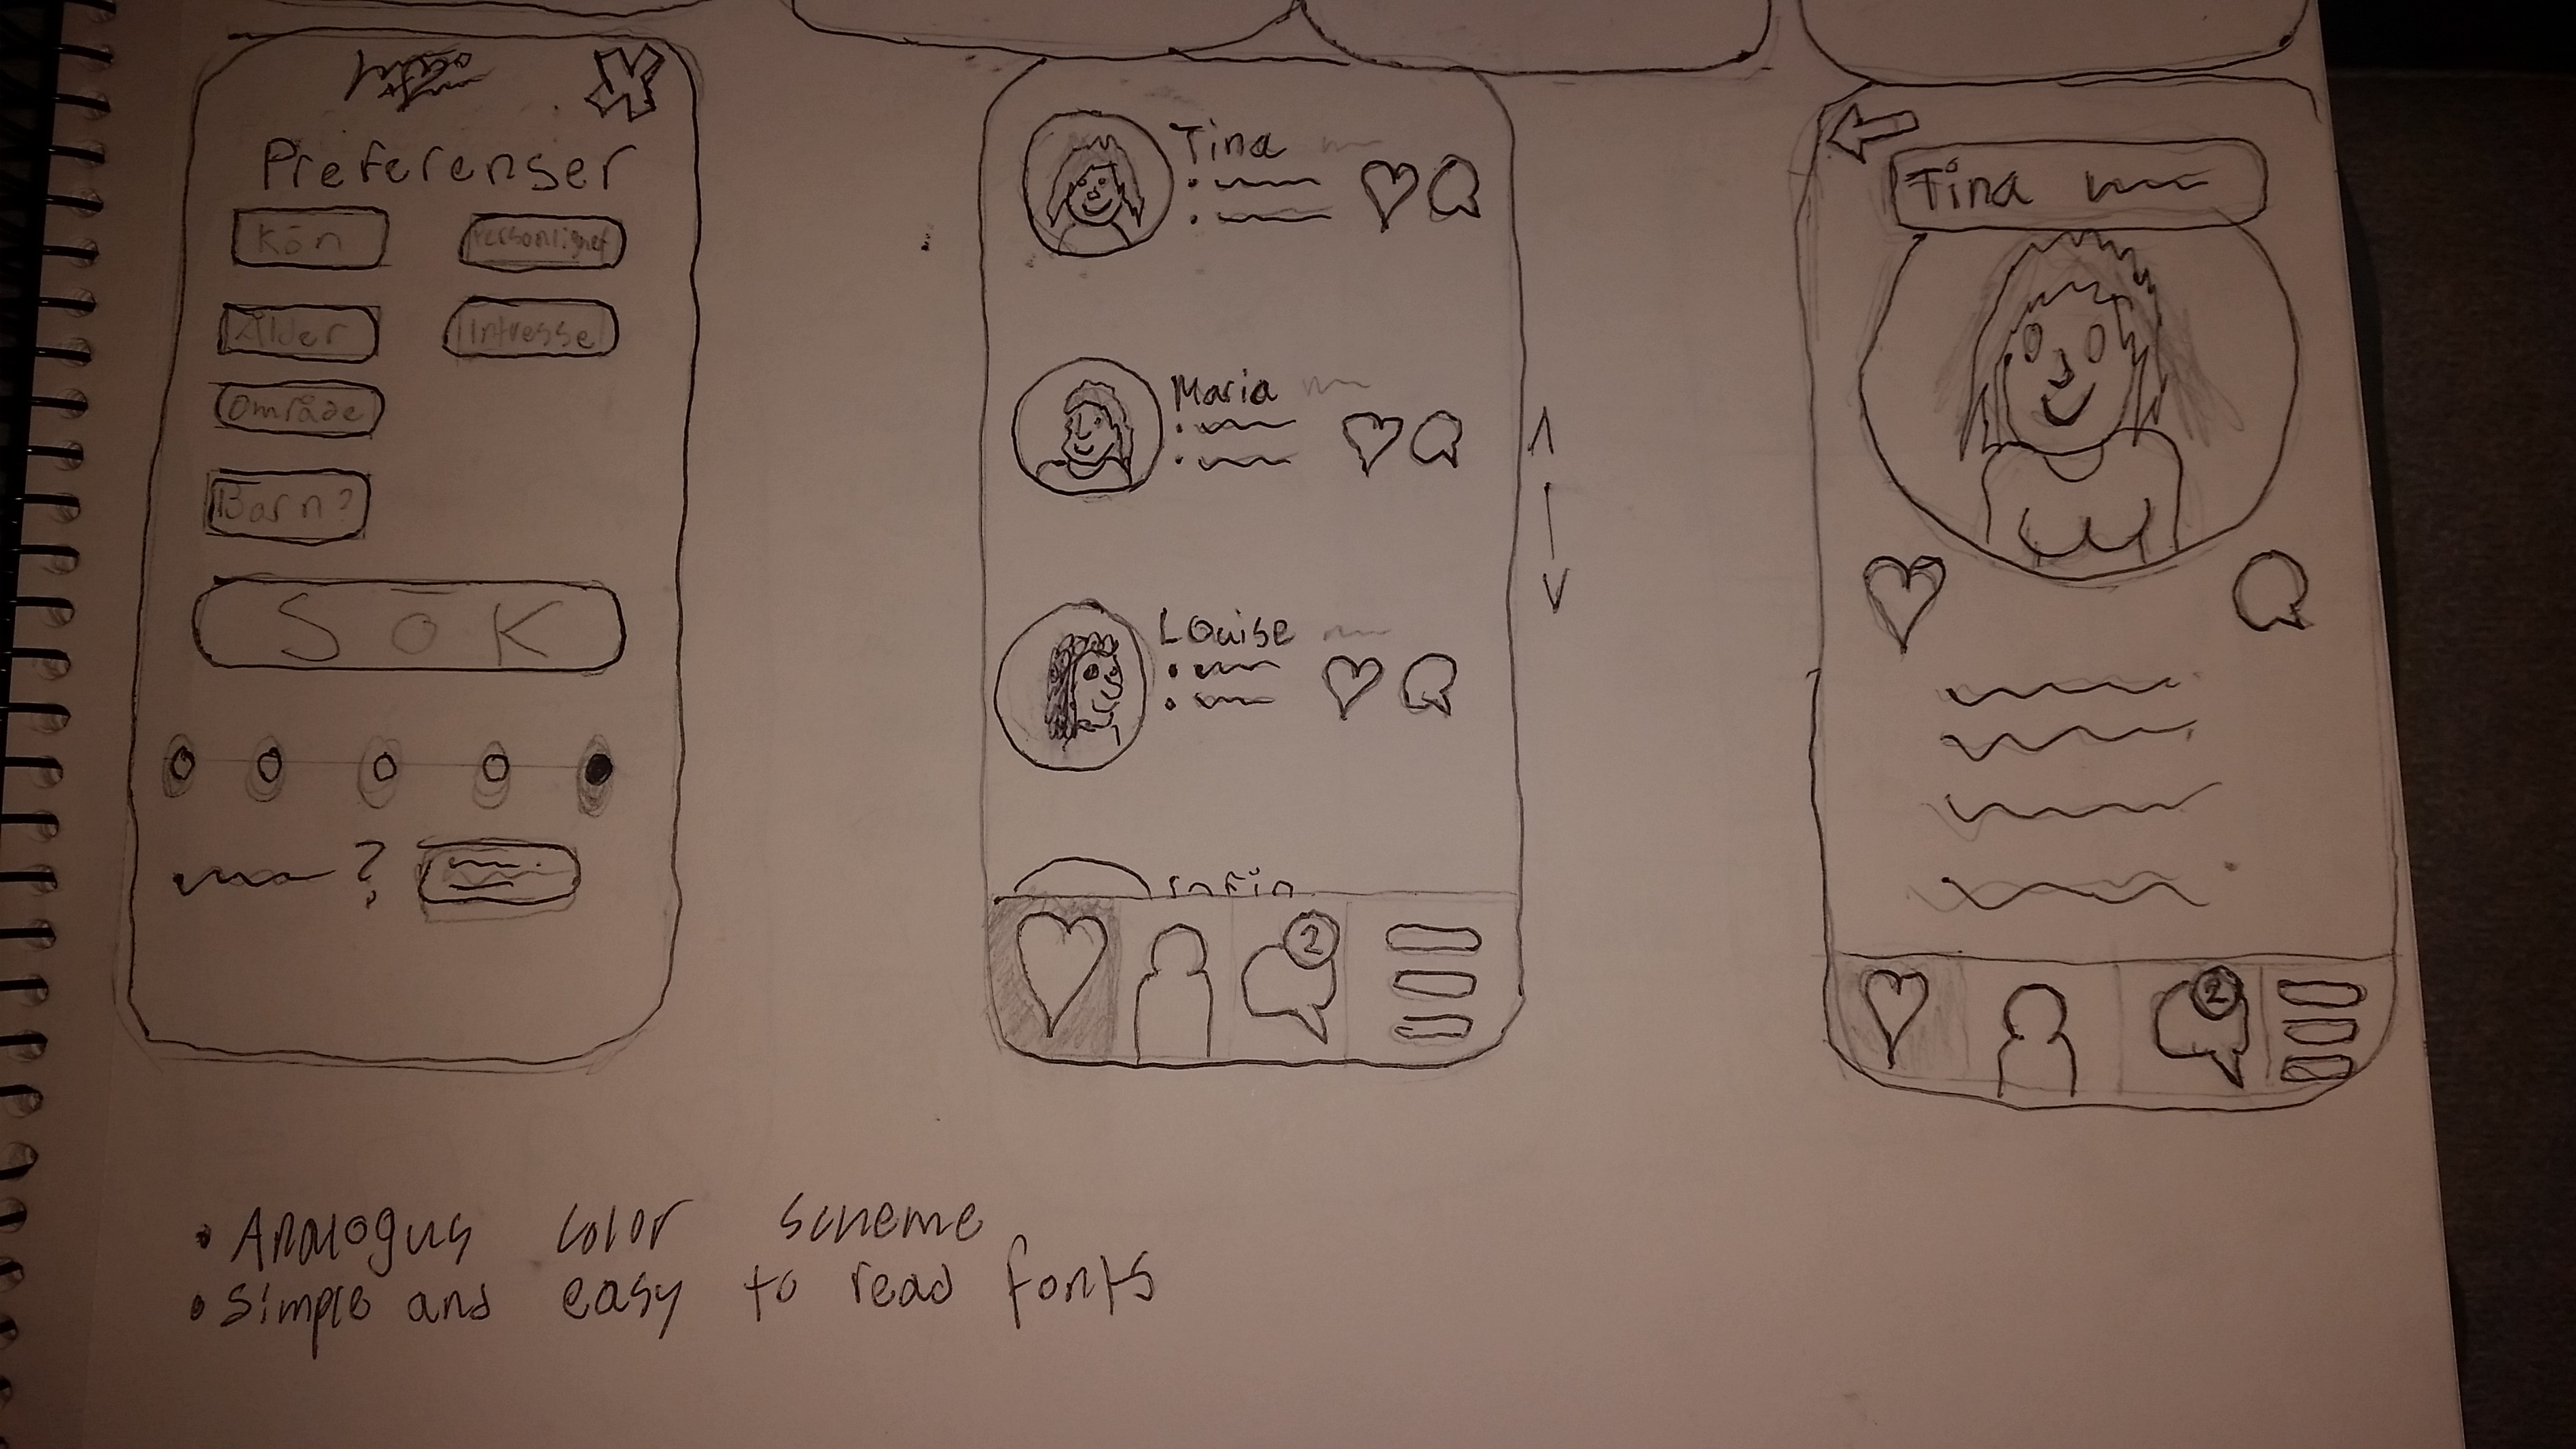 Preferenser
Kön
Personlighet
Ålder
Intresse
Område
Barn?
SÖK
?
Tina
Maria
Louise
2
Tina
2
• Analogus color scheme
• Simple and easy to read fonts